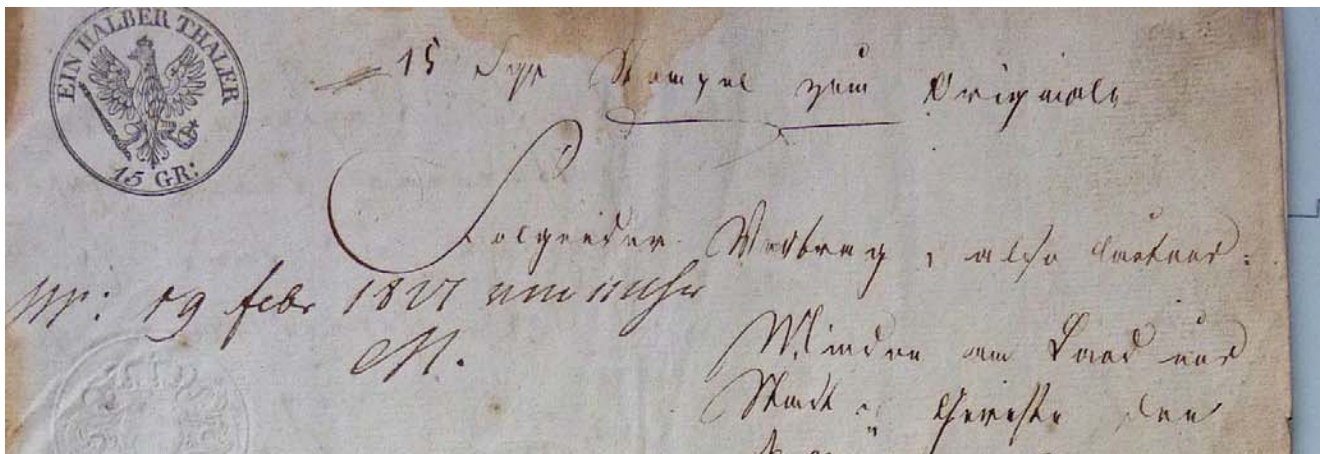 EIN HALBER THALER
15 GR:
15 Sgr Stempel zum Originale
Folgender Vertrag, also lautend:
19 febr 1827
M.
Minden am Land und
Stadt Gerichte den